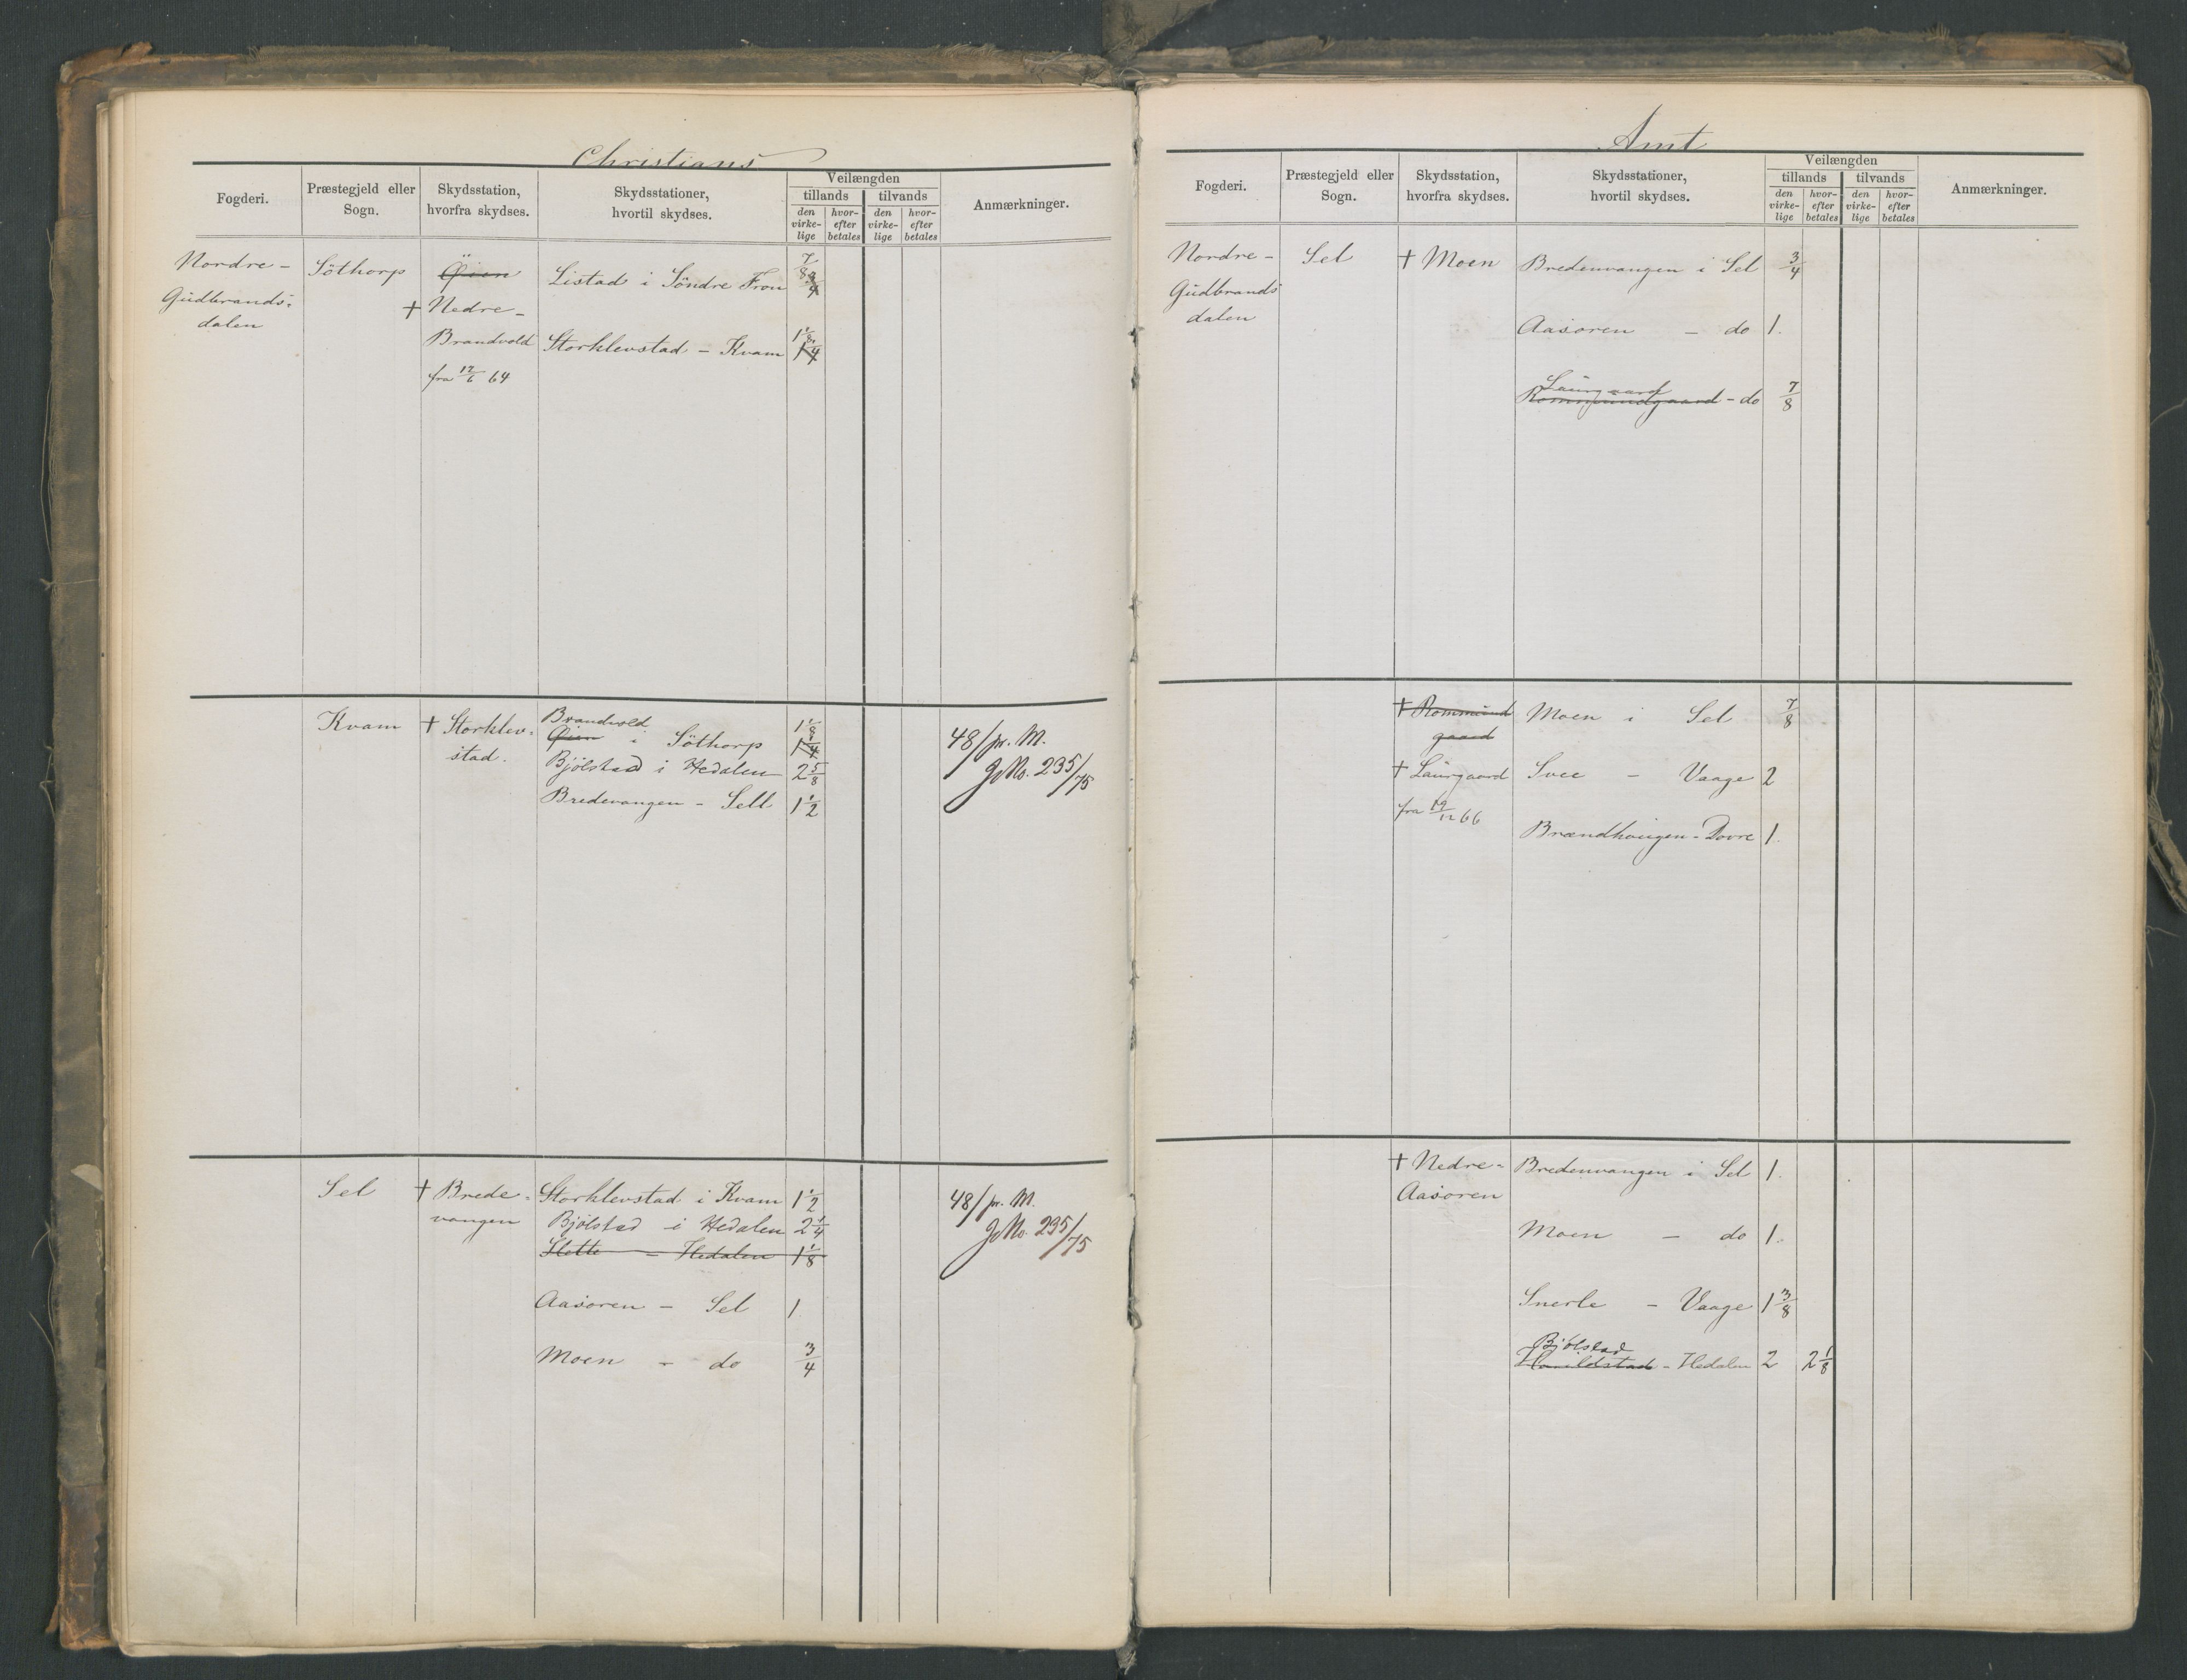 Christians
Fogderi.
Præstegjeld eller
Sogn.
Skydsstation,
hvorfra skydses.
Skydsstationer,
hvortil skydses.
Veilængden
tillands
tilvands
den
virke-
lige
hvor-
efter
betales
den
virke-
lige
hvor-
efter
betales
Anmærkninger.
Nordre-
Gudbrands-
dalen
Söthorp
Öien
+ Nedre-
Brandvold
fra 12/6 64
Listad i Söndre Fron 7/8 3/4
Storklevstad - Kvam 1 1/8 1 1/4
Kvam
+ Storklev-
stad.
Brandvold
Öien i Söthorp 1 1/8 1 1/4
Bjölstad i Hedalen 2 5/8
Bredevangen - Sell 1 1/2
48/pr. M.
J No. 235/75
Sel
+ Brede-
vangen
Storklevstad i Kvam 1 1/2
Bjölstad i Hedalen 2 1/4
Slette - Hedalen 1 1/8
Aasoren - Sel 1
Moen - do 3/4
48/pr. M.
J No. 235/75
Amt
Fogderi.
Præstegjeld eller
Sogn.
Skydsstation,
hvorfra skydses.
Skydsstationer,
hvortil skydses.
Veilængden
tillands
tilvands
den
virke-
lige
hvor-
efter
betales
den
virke-
lige
hvor-
efter
betales
Anmærkninger.
Nordre-
Gudbrands
dalen
Sel
+ Moen
Bredenvangen i Sel 3/4
Aasoren - do 1.
Laurgaard
Rommundgaard - do 7/8
+ Rommund
gaard
+ Laurgaard
fra 12 66
Moen i Sel 7/8
Svee - Vaage 2
Brændhaugen - Dovre 1.
+ Nedre-
Aasoren
Bredenvangen i Sel 1.
Moen - do 1.
Snerle - Vaage 1 3/8
Bjölstad
- Hedalen 2 2 1/8